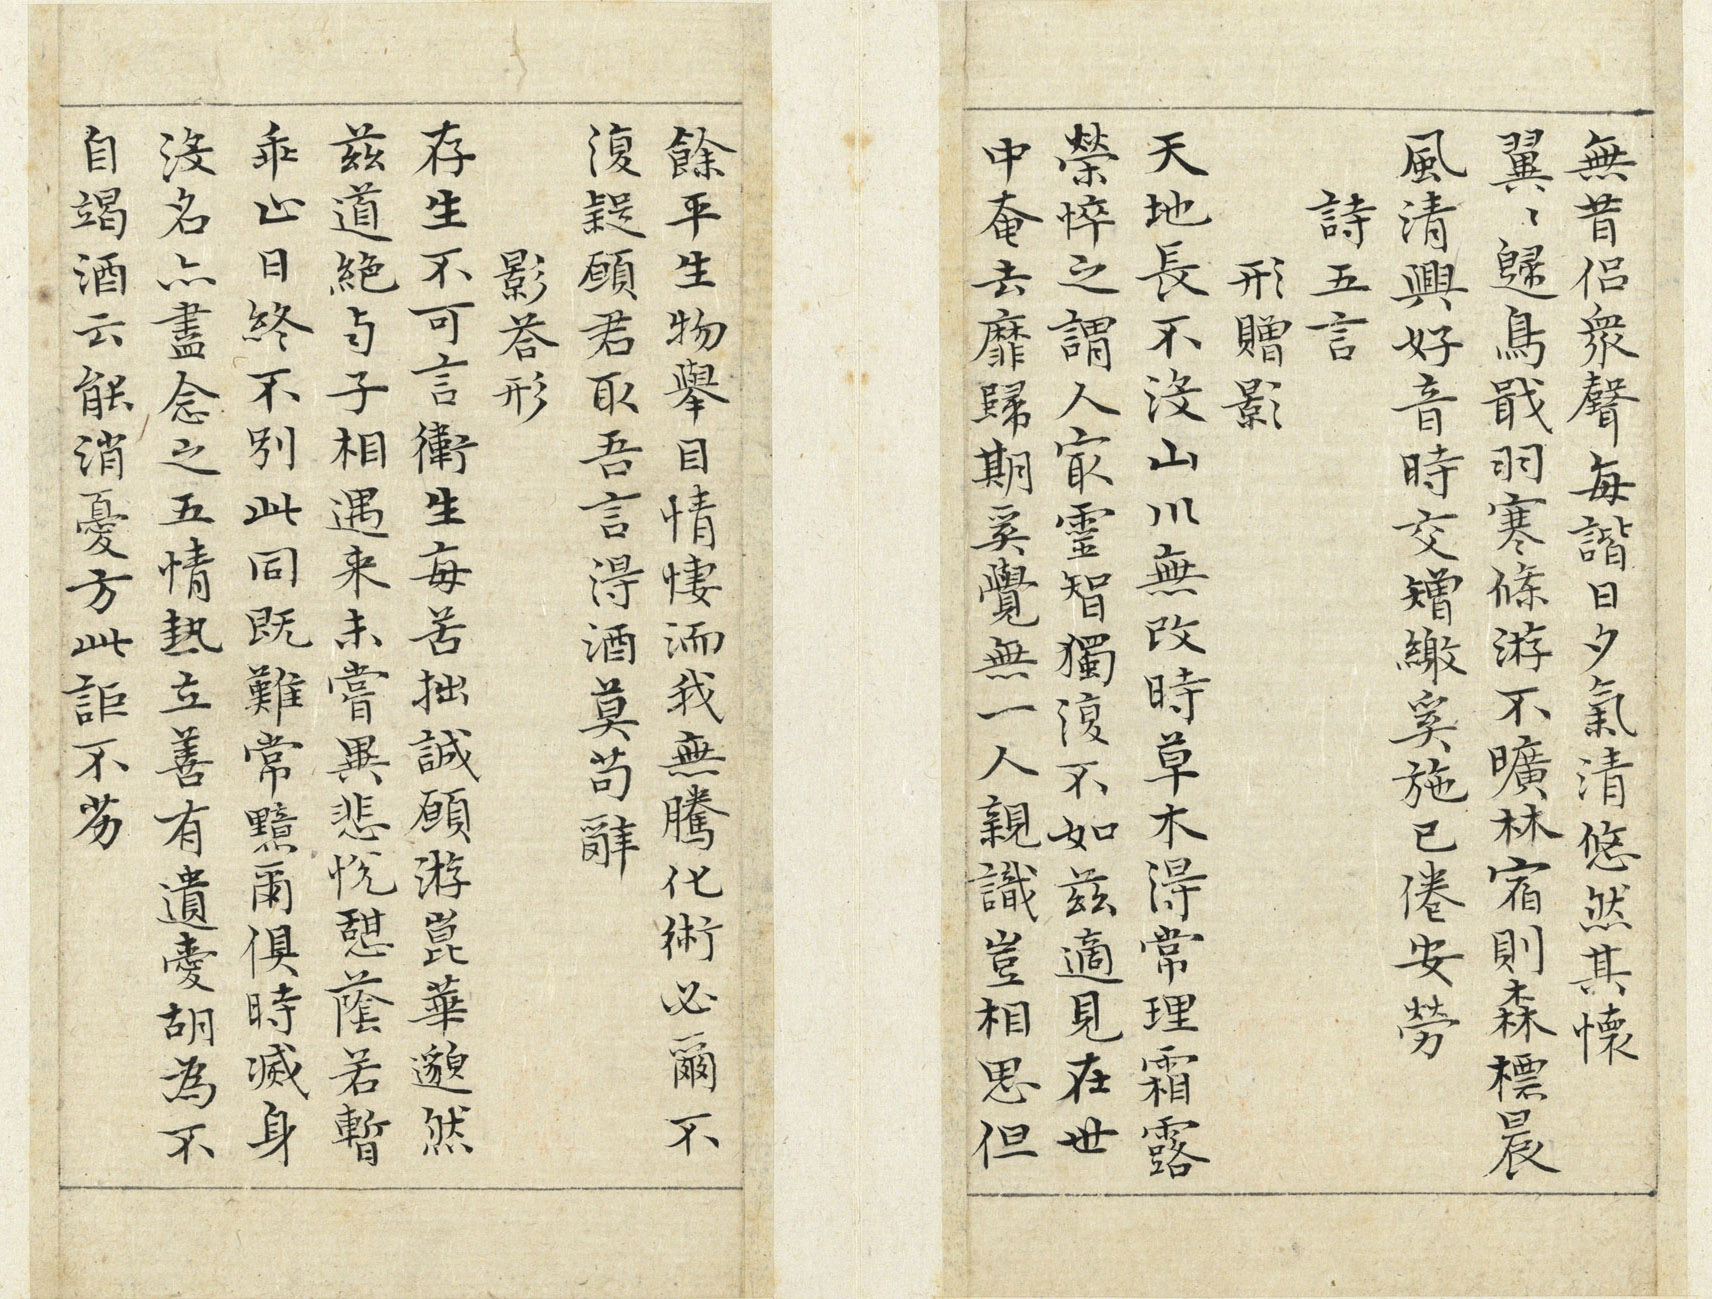 無昔侣衆聲每諧日夕氣清悠然其懷
翼〻歸鳥戢羽寒條游不曠林宿則森標晨
風清興好音時交矰繳奚施已倦安勞
詩五言
形贈影
天地長不沒山川無改時草木得常理霜露
榮悴之謂人㝡靈智獨復不如茲適見在世
中奄去靡歸期奚覺無一人親識豈相思但
餘平生物舉目情悽洏我無騰化術必爾不
復疑願君取吾言得酒莫苟辭
影荅形
存生不可言衛生每苦拙誠願游崑華邈然
茲道絕与子相遇来未嘗異悲悅憩蔭若暫
乖止日終不別此同既難常黯爾俱時滅身
沒名亦盡念之五情熱立善有遺愛胡為不
自竭酒云能消憂方此詎不劣